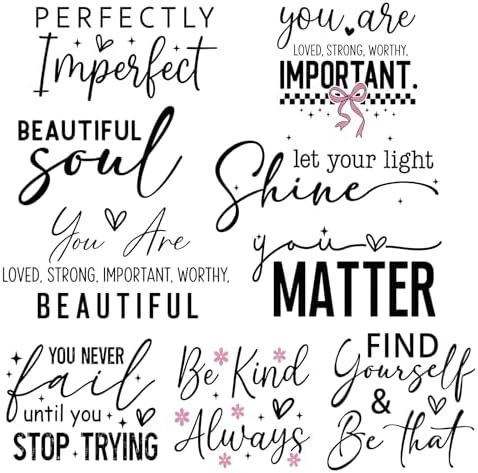 PERFECTLY
Imperfect
you are
LOVED, STRONG, WORTHY,
IMPORTANT.
BEAUTIFUL
soul
let your light
Shine
You Are
LOVED, STRONG, IMPORTANT, WORTHY,
BEAUTIFUL
you
MATTER
YOU NEVER
fail
until you
STOP TRYING
Be Kind
Always
FIND
Yourself
&
Be that